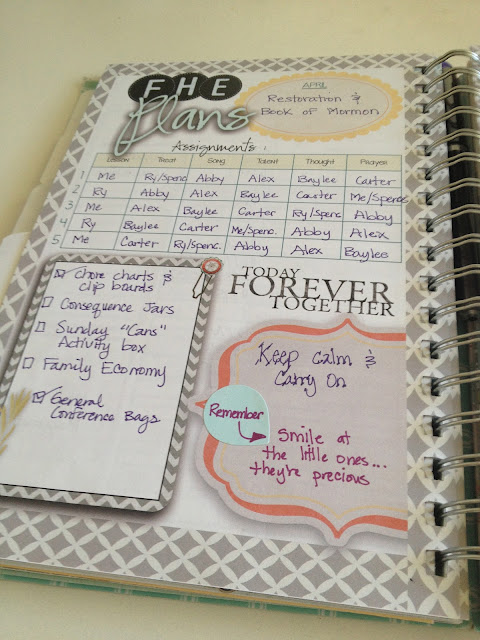 FHE
Plans
APRIL
Restoration &
Book of Mormon
Assignments:
Lesson Treat Song Talent Thought Prayer
1 Me Ry/Spenc Abby Alex Baylee Carter
2 Ry Abby Alex Baylee Carter Me/Spence
3 Me Alex Baylee Carter Ry/Spenc Abby
4 Ry Baylee Carter Me/Spenc. Abby Alex
5 Me Carter Ry/Spenc. Abby Alex Baylee
Chore charts &
clip boards
Consequence Jars
Sunday "Cans"
Activity box
Family Economy
General
Conference Bags
TODAY
FOREVER
TOGETHER
Keep calm &
Carry On
Remember
Smile at
the little ones...
they're precious